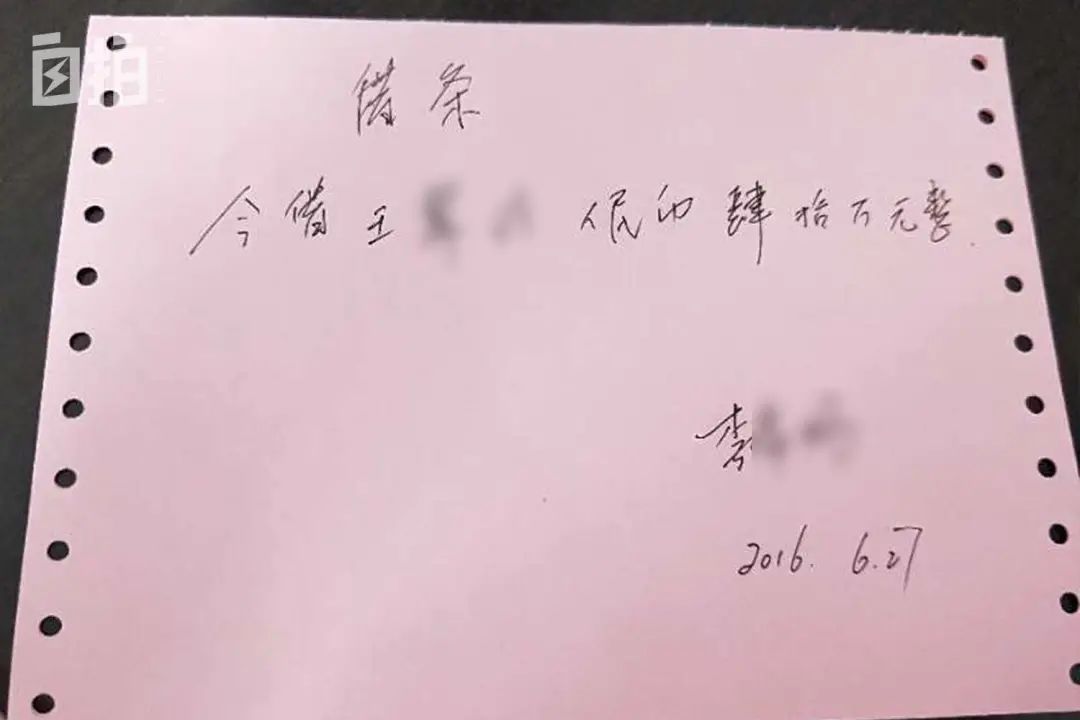 自拍
借条
今借王 人民币肆拾万元整.
李
2016. 6.27